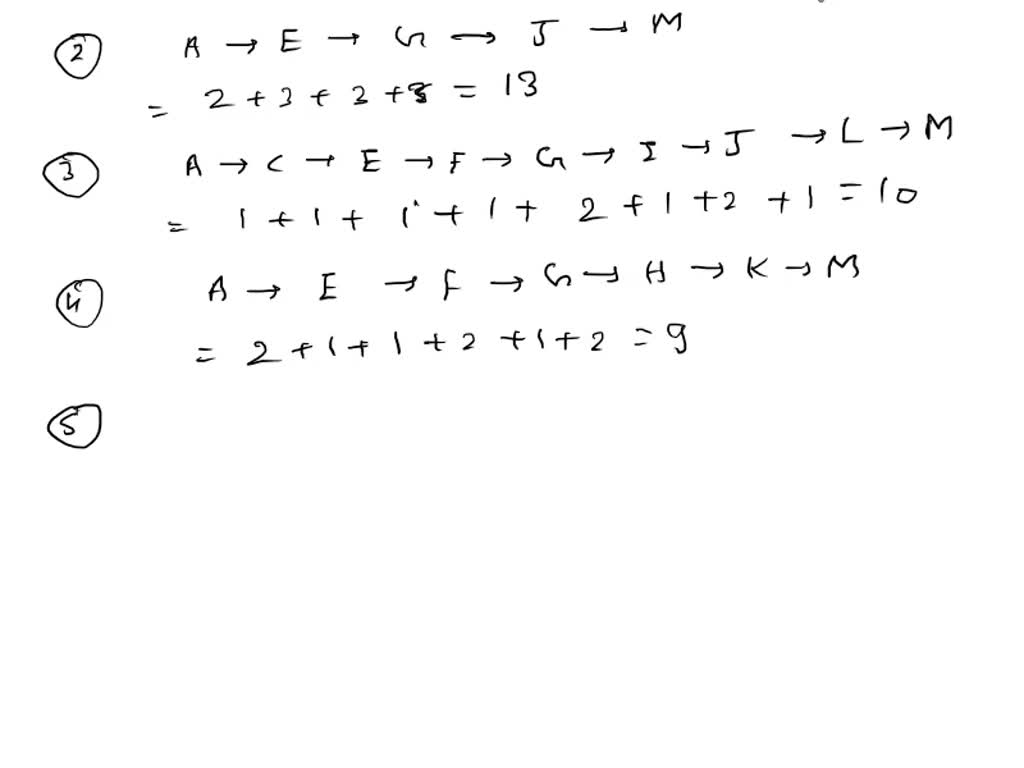 ② A → E → G → J → M
= 2 + 3 + 3 + 5 = 13
③ A → C → E → F → G → I → J → L → M
= 1 + 1 + 1 + 1 + 2 + 1 + 2 + 1 = 10
④ A → E → F → G → H → K → M
= 2 + 1 + 1 + 2 + 1 + 2 = 9
⑤